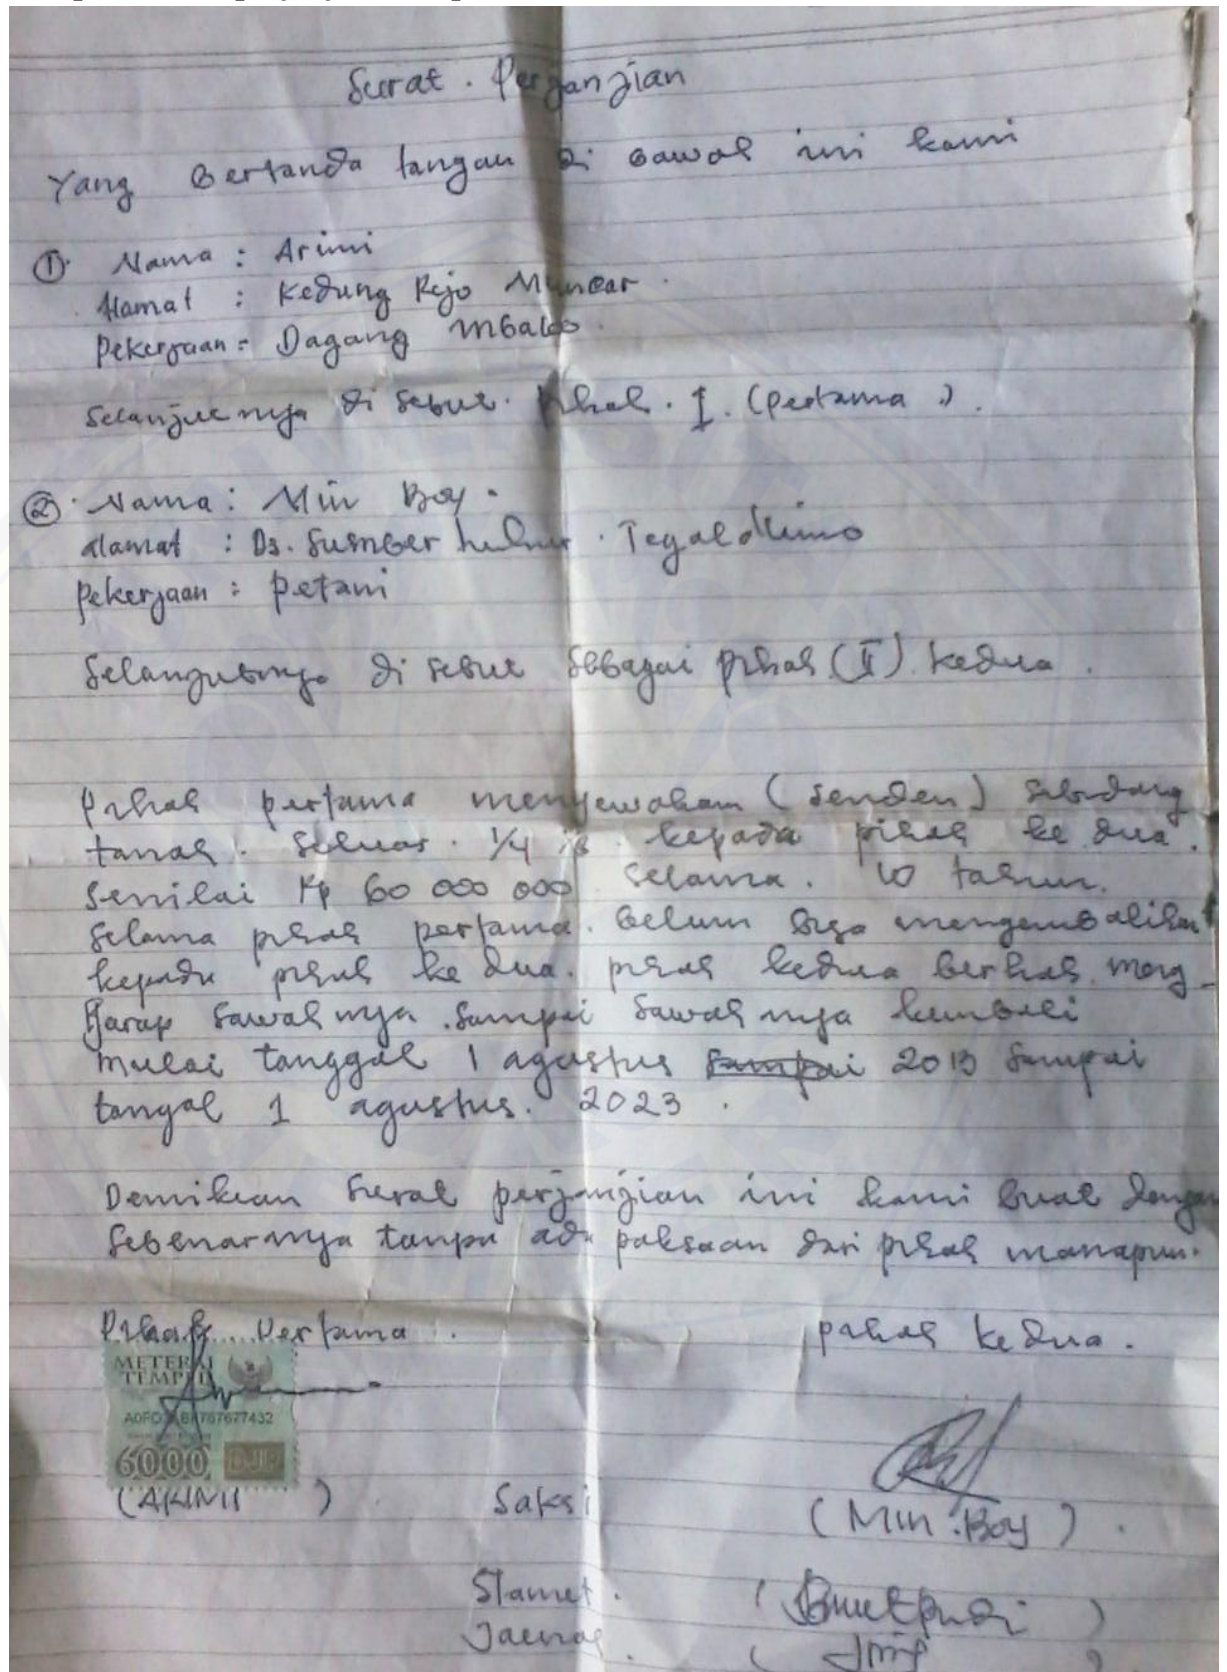 Surat. Perjanjian
Yang Bertanda tangan di Bawah ini kami
① Nama : Arimi
Alamat : Kedung Rejo Muncar.
Pekerjaan :
Dagang
Selanjutnya di sebut. Pihak. I. (pertama.).
② Nama : Min Boy.
alamat : Ds. Sumber luhur. Tegaldlimo
Pekerjaan : petani
Selanjutnya di sebut sebagai pihak (II) kedua.
Pihak pertama menyewakan (senden) sebidang
tanah. seluas. 1/4 kepada pihak ke dua.
Senilai Rp 60 000 000 selama. 10 tahun.
Selama pihak pertama. Belum Bisa mengembalikan
kepada pihak ke dua. pihak kedua berhak meng-
garap sawahnya. sampai sawahnya kembali
mulai tanggal 1 agustus sampai 2013 sampai
tangal 1 agustus. 2023.
Demikian surat perjanjian ini kami buat dengan
sebenarnya tanpa ada paksaan dari pihak manapun.
Pihak Pertama. pihak kedua.
METERAI
TEMPEL
6000 DJP
(ARIMI) Saksi (Min Boy).
Slamet.